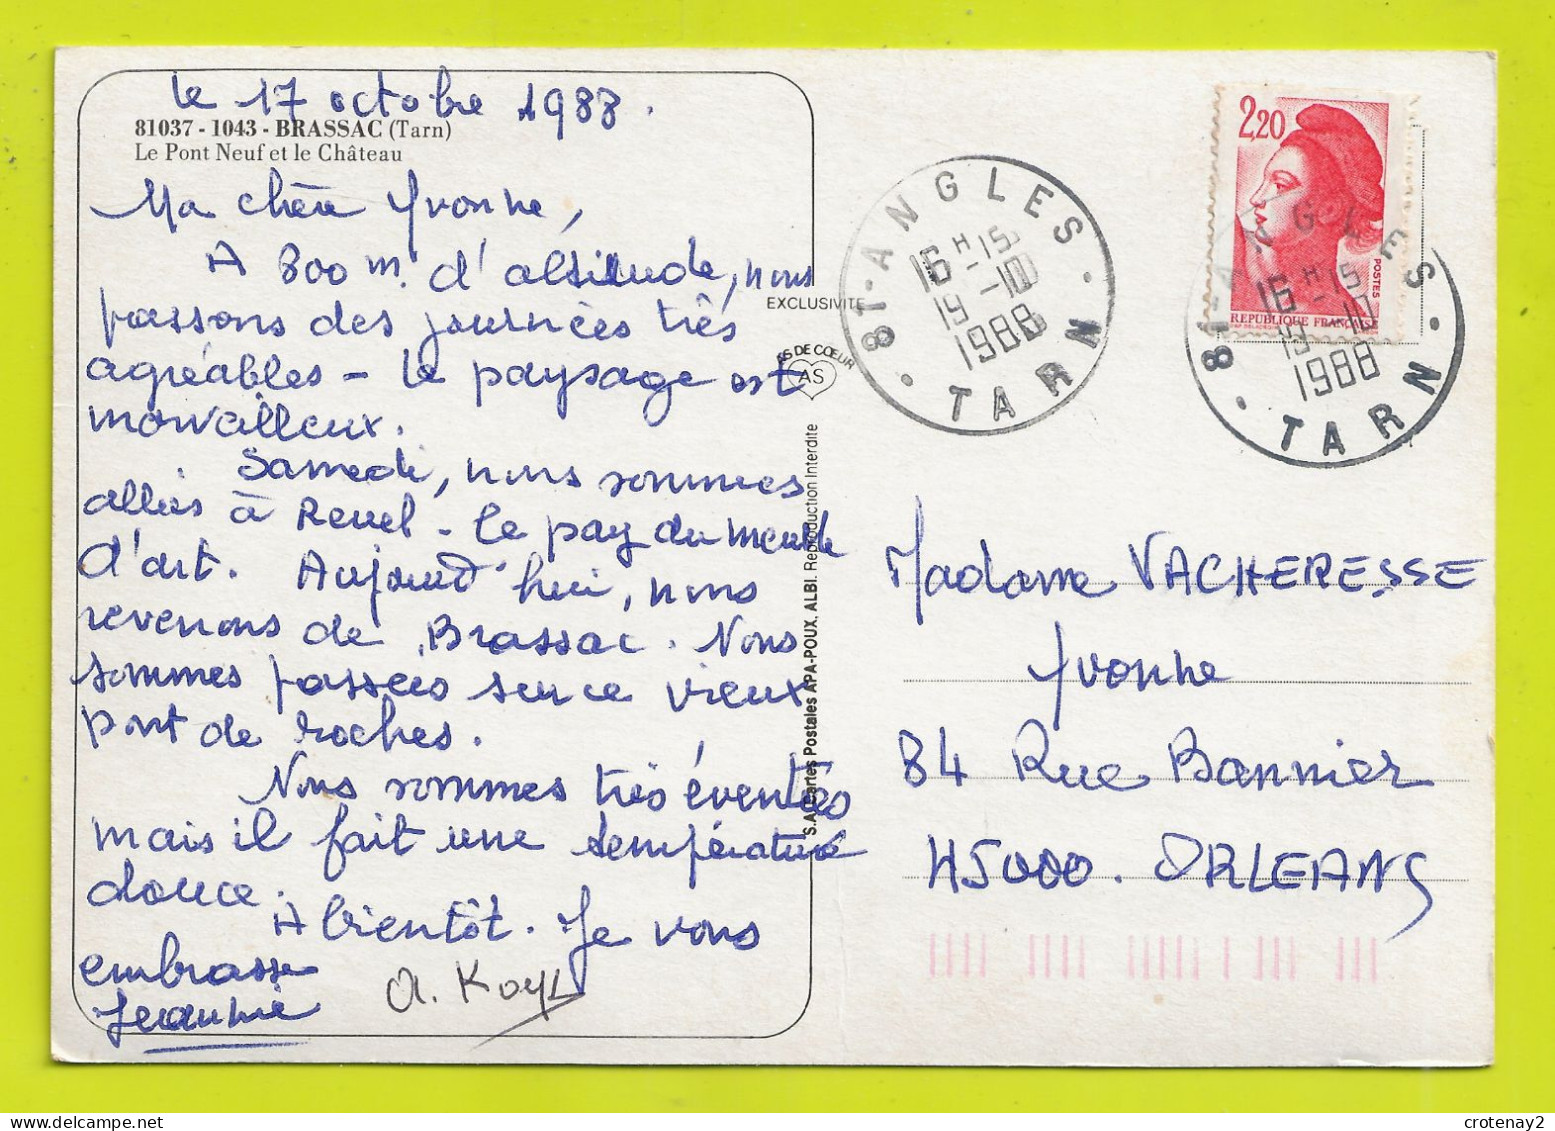 le 17 octobre 1988.
81037 - 1043 - BRASSAC (Tarn)
Le Pont Neuf et le Château
Ma chère Yvonne,
A 800 m. d'altitude, nous
passons des journées très
agréables - le paysage est
merveilleux.
Samedi, nous sommes
allés à Revel - le pay du meuble
d'art. Aujourd'hui, nous
revenons de Brassac. Nous
sommes passées sur ce vieux
pont de roches.
Nous sommes très éventées
mais il fait une température
douce.
A bientôt. Je vous
embrasse
Jeannine
EXCLUSIVITE
AS DE CŒUR
AS
S.A. Cartes Postales APA-POUX, ALBI. Reproduction Interdite
81 - ANGLES
16 H - 15
19 - 10
1988
TARN
2,20
POSTES
REPUBLIQUE FRANÇAISE
81 - ANGLES
16 H - 15
19 - 10
1988
TARN
Madame VACHERESSE
Yvonne
84 Rue Bannier
45000. ORLEANS
crotenay2